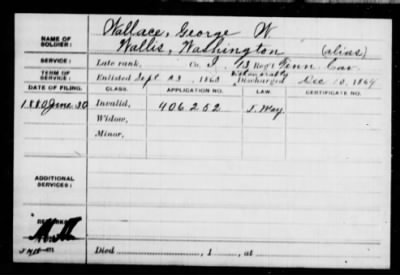 NAME OF SOLDIER: Wallace, George W.
Wallis, Washington (alias)
SERVICE: Late rank, Co. I, 13 Reg't Tenn Cav.
TERM OF SERVICE: Enlisted Sept 23, 1863 Honorably Discharged Dec 10, 1864
DATE OF FILING. CLASS. APPLICATION NO. LAW. CERTIFICATE NO.
1880 June 30 Invalid, 406.252 J. Way,
Widow,
Minor,
ADDITIONAL SERVICES:
REMARKS:
Died , 1 , at